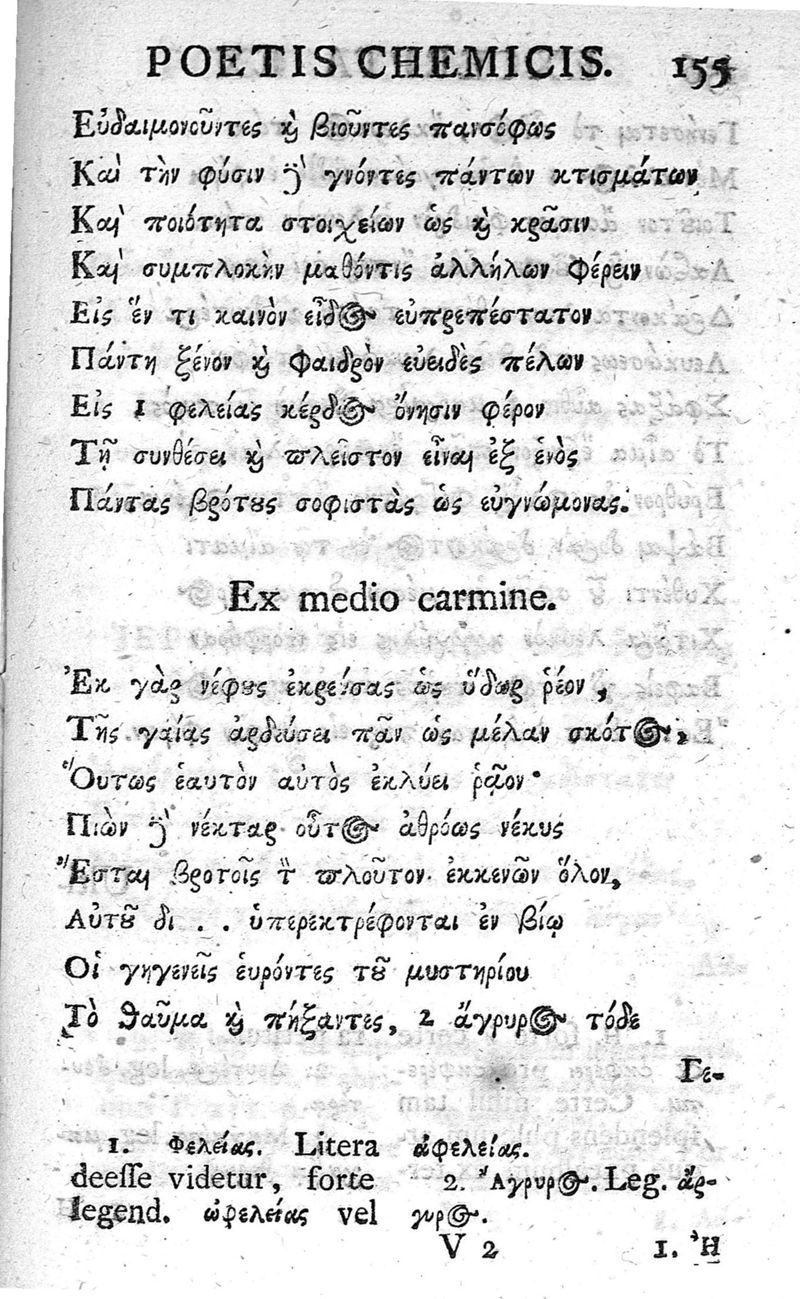 POETIS CHEMICIS. 155
Εὐδαιμονοῦντες ϗ βιοῦντες πανσόφως
Καὶ τὴν φύσιν γνόντες πάντων κτισμάτων
Καὶ ποιότητα στοιχείων ὡς ϗ κρᾶσιν
Καὶ συμπλοκὴν μαθόντις ἀλλήλων φέρειν
Εἰς ἕν τι καινὸν εἶδος εὐπρεπέστατον
Πάντη ξένον ϗ φαιδρὸν εὐειδὲς πέλων
Εἰς 1 φελείας κέρδος ὄνησιν φέρον
Τῇ συνθέσει ϗ πλεῖστον εἶναι ἐξ ἑνὸς
Πάντας βρότȣς σοφιστὰς ὡς εὐγνώμονας.
Ex medio carmine.
Ἐκ γὰρ νέφȣς ἐκρεύσας ὡς ὕδωρ ῥέον,
Τῆς γαίας ἀρδεύσει πᾶν ὡς μέλαν σκότος,
Ὅυτως ἑαυτὸν αὐτὸς ἐκλύει ῥᾷον·
Πιὼν νέκταρ οὗτος ἀθρόως νέκυς
Ἔσται βροτοῖς τ πλοῦτον ἐκκενῶν ὅλον,
Αὐτȣ͂ δι . . ὑπερεκτρέφονται ἐν βίῳ
Οἱ γηγενεῖς ἑυρόντες τȣ͂ μυστηρίου
Τὸ θαῦμα ϗ πήξαντες, 2 ἄγρυρος τόδε
Γε-
1. Φελείας. Litera
deesse videtur, forte
legend. ὠφελείας vel
ἀφελείας.
2. Ἄγρυρος. Leg. ἄρ-
γυρος.
V 2 1. Ἢ